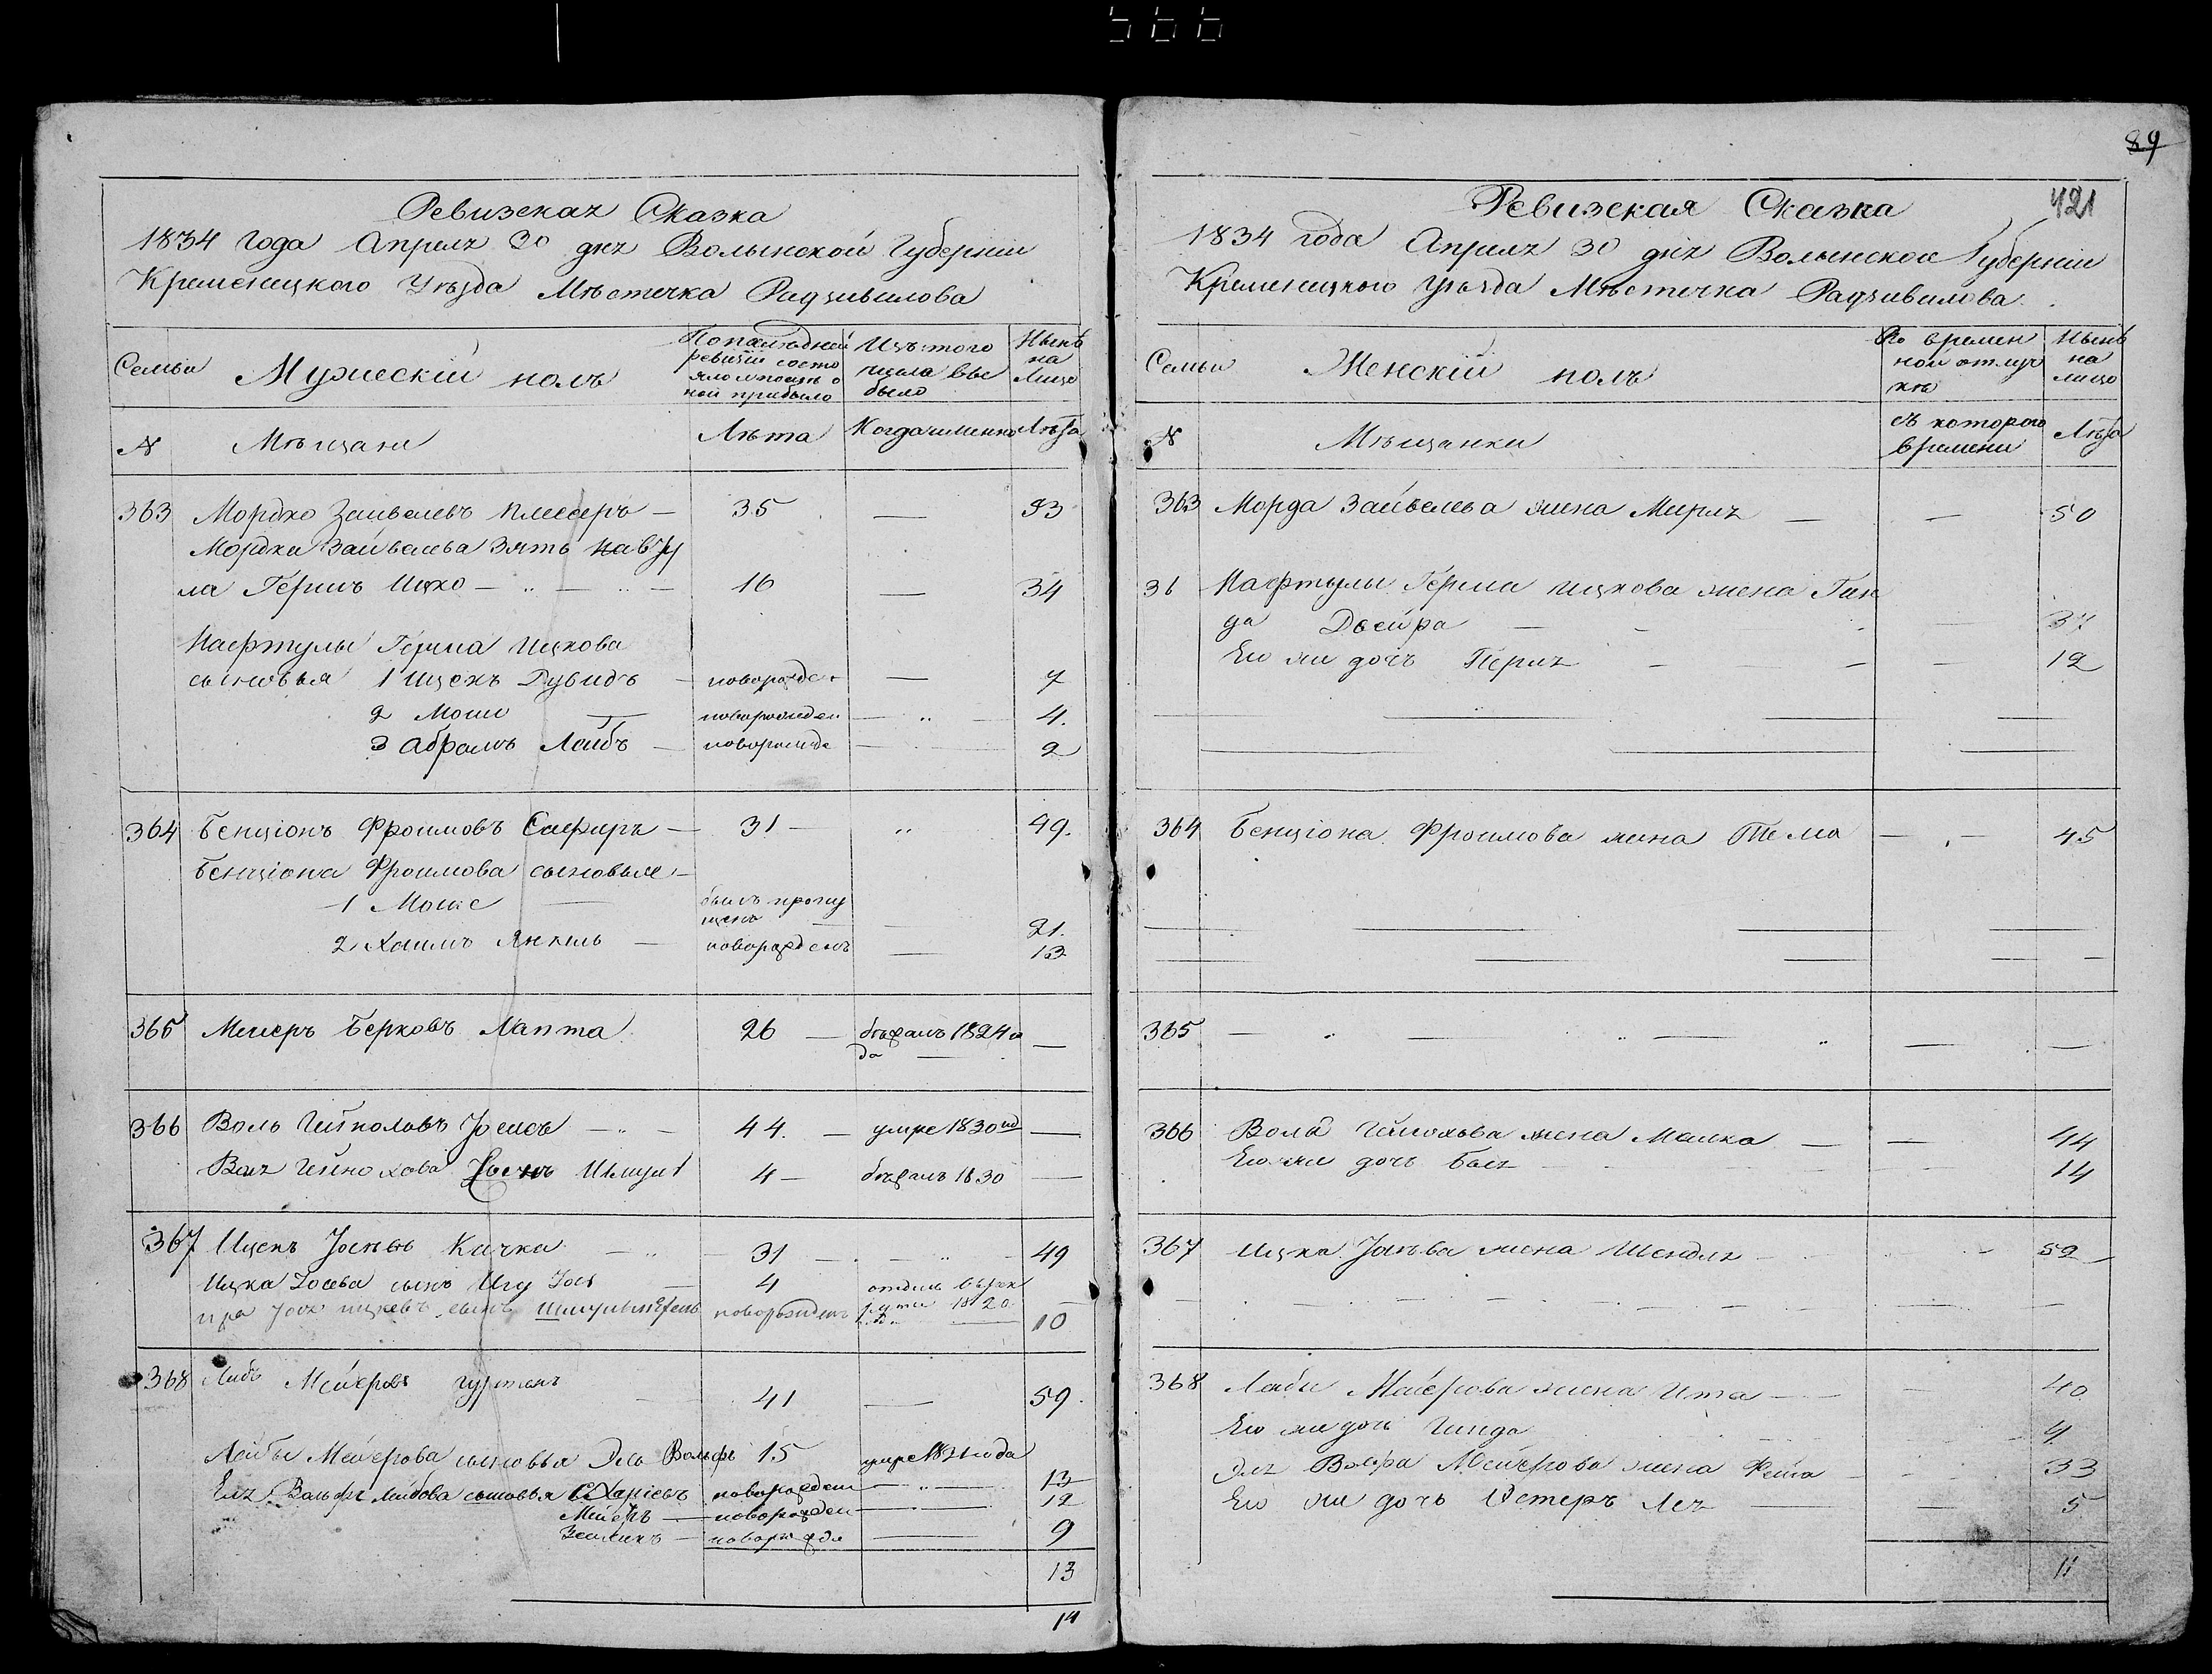 566
89
Ревизская Сказка
1834 года Апреля 30 дня Волынской Губернии
Кременецкого Уѣзда Мѣстечка Радзивилова
Семьи
Мужескій полъ
По последней ревизіи состо яло и после о ной прибыло
Изъ того числа вы было
Нынѣ на Лицо
№
Мѣщане
Лѣта
Когда именно
Лѣта
363 Мордко Зайвелевъ — 35 — 53
Мордки Зайвелева Зять Нафту
ла Гершъ Ицко — 16 — 34
Нафтулы Герша Ицкова
сыновья 1 Ицекъ Дувидъ — новорожден — 7
2 Моше — новорожден — 4.
3 Абрамъ Лейбъ — новорожде — 2
364 Бенціонъ Фроимовъ Сафиръ — 31 — 49.
Бенціона Фроимова сыновья —
1 Моше — былъ пропу
щенъ — 21.
2 Хаимъ Янкель — новорожденъ — 13
365 Мееръ Берковъ Лапта 26 — бѣжалъ 1824 го
да —
366 Воль — 44. — умре 1830 го —
4 — бѣжалъ 1830 —
367 Ицекъ Іосевъ Качка — 31 — 49
Ицка Іосева сынъ — 4
новорожденъ 1820 10
368 Лейбъ Мейеровъ 41 — 59.
Лейбы Мейерова сыновья Эль Вольфъ 15 умре 1821 года
Эля Вольфа Лейбова сыновья новорожден — 13
Мейеръ — новорожден — 12
новорожде — 9
13
14
Ревизская Сказка 421
1834 года Апреля 30 дня Волынской Губерніи
Кременецкого Уѣзда Мѣстечка Радзивилова.
Семьи
Женскій полъ
Во времен ной отлуч кѣ
Нынѣ на лицо
№
Мѣщанки
съ которого времени
Лѣта
363 Мордка Зайвелева жена Мирля — — 50
36 Нафтулы Герша Ицкова жена Гин
да Двейра — 37
Его же дочь Перля — 12
364 Бенціона Фроимова жена Тема — 45
365 —
366 жена Малка — — 44
Его же дочь Бася — 14
367 Ицка Іосева жена Шендля — 52
368 Лейбы Мейерова жена Ита — 40
Его же дочь Гинда 9
Эля Вольфа Мейерова жена Фейга — 33
Его же дочь Естеръ Лея — 5
11